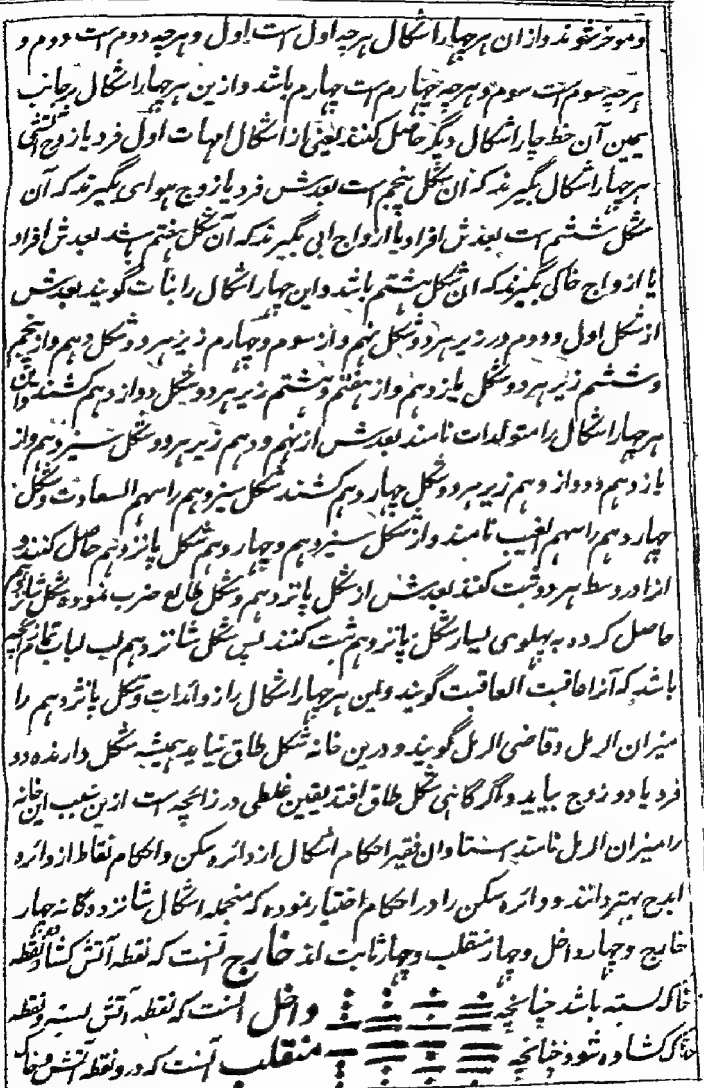 و موخر شوند و ازان هر چهار اشکال هرچه اول است اول و هرچه دوم است دوم و
هرچه سوم است سوم و هرچه چهارم است چهارم باشد و ازین هر چهار اشکال برجانب
یمین آن خط چار اشکال دیگر حاصل کنند یعنی از اشکال امهات اول فرد یا زوج آتشی
هر چهار اشکال بگیرند که آن شکل پنجم است بعدش فرد یا زوج هوای بگیرند که آن
شکل ششم است بعدش افراد یا ازواج ابی بگیرند که آن شکل هفتم باشد بعدش افراد
یا ازواج خاکی بگیرند که ان شکل هشتم باشد و این چهار اشکال را بنات گویند بعدش
از شکل اول و دوم در زیر هر دو شکل نهم و از سوم و چهارم زیر هر دو شکل دهم و از پنجم
و ششم زیر هر دو شکل یازدهم و از هفتم و هشتم زیر هر دو شکل دوازدهم کشند و این
هر چهار اشکال را متولدات نامند بعدش از نهم و دهم زیر هر دو شکل سیزدهم و از
یازدهم و دوازدهم زیر هر دو شکل چهاردهم کشند شکل سیزدهم را سهم السعادت و شکل
چهاردهم را سهم الغیب نامند و از شکل سیزدهم و چهاردهم شکل پانزدهم حاصل کنند و
انرا در وسط هر دو ثبت کنند بعدش از شکل پانزدهم و شکل طالع ضرب نموده شکل شانزدهم
حاصل کرده به پهلوی یسار شکل پانزدهم ثبت کنند پس شکل شانزدهم لب لباب تمام زائچه
باشد که آنرا عاقبت العاقبت گویند و این هر چهار اشکال را زوائدات و شکل پانزدهم را
میزان الرمل و قاضی الرمل گویند و درین خانه شکل طاق نیاید همیشه شکل دارنده دو
فرد یا دو زوج بیاید و اگر گاهی شکل طاق افتد یقین غلطی در زائچه است ازین سبب این خانه
را میزان الرمل نامند استادان فقیر احکام اشکال از دائره سکن و احکام نقاط از دائره
ابدح بهتر دانند و دائره سکن را در احکام اختیار نموده که منجمله اشکال شانزده گانه چهار
خارج و چهار داخل و چهار منقلب و چهار ثابت اند خارج آنست که نقطه آتش کشاده و نقطه
خاک بسته باشد چنانچه داخل آنست که نقطه آتش بسته و نقطه
خاک کشاده شود چنانچه منقلب آنست که در و نقطه آتش و خاک